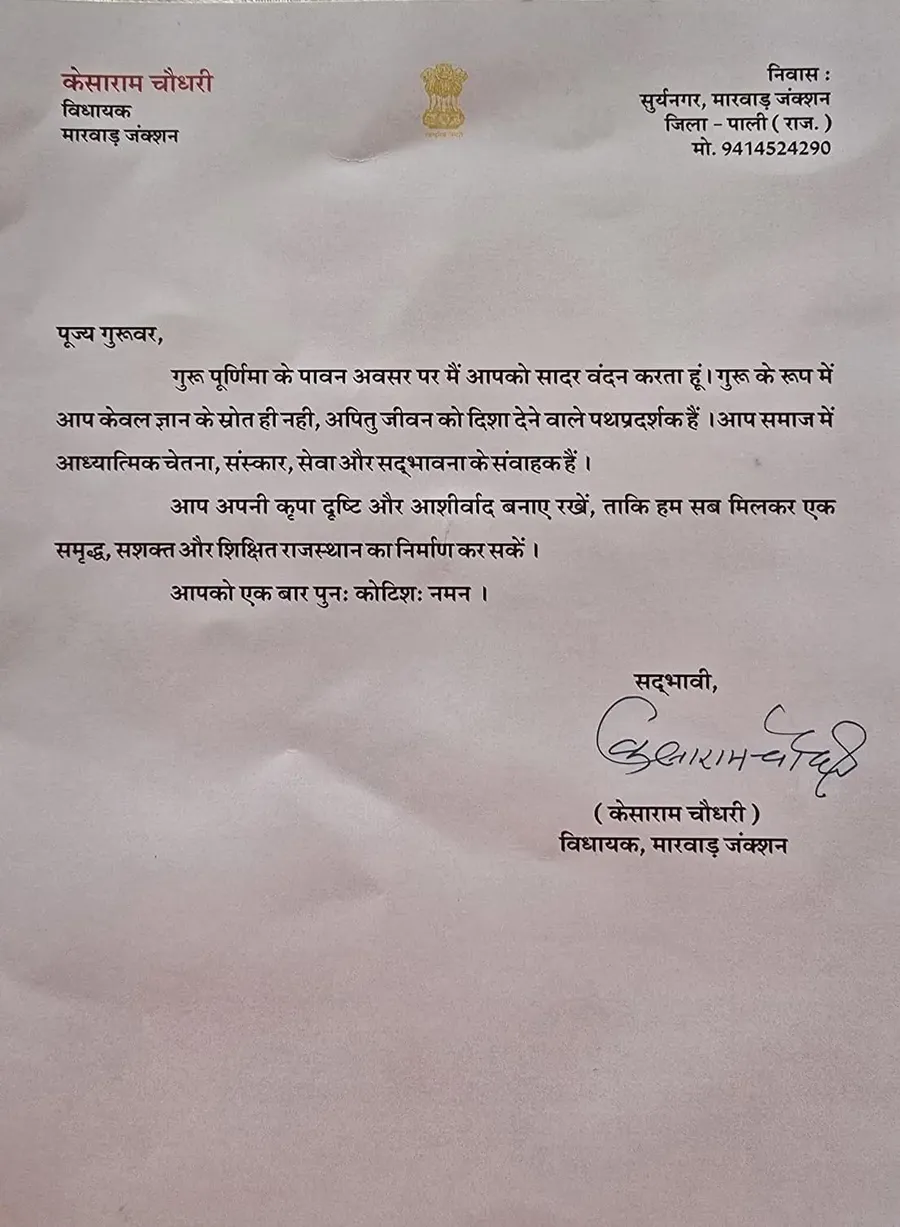 केसाराम चौधरी
विधायक
मारवाड़ जंक्शन
निवास :
सुर्यनगर, मारवाड़ जंक्शन
जिला - पाली ( राज. )
मो. 9414524290
पूज्य गुरूवर,
गुरू पूर्णिमा के पावन अवसर पर मैं आपको सादर वंदन करता हूं। गुरू के रूप में
आप केवल ज्ञान के स्रोत ही नही, अपितु जीवन को दिशा देने वाले पथप्रदर्शक हैं । आप समाज में
आध्यात्मिक चेतना, संस्कार, सेवा और सद्‌भावना के संवाहक हैं ।
आप अपनी कृपा दृष्टि और आशीर्वाद बनाए रखें, ताकि हम सब मिलकर एक
समृद्ध, सशक्त और शिक्षित राजस्थान का निर्माण कर सकें ।
आपको एक बार पुनः कोटिशः नमन ।
सद्‌भावी,
केसाराम चौधरी
( केसाराम चौधरी )
विधायक, मारवाड़ जंक्शन